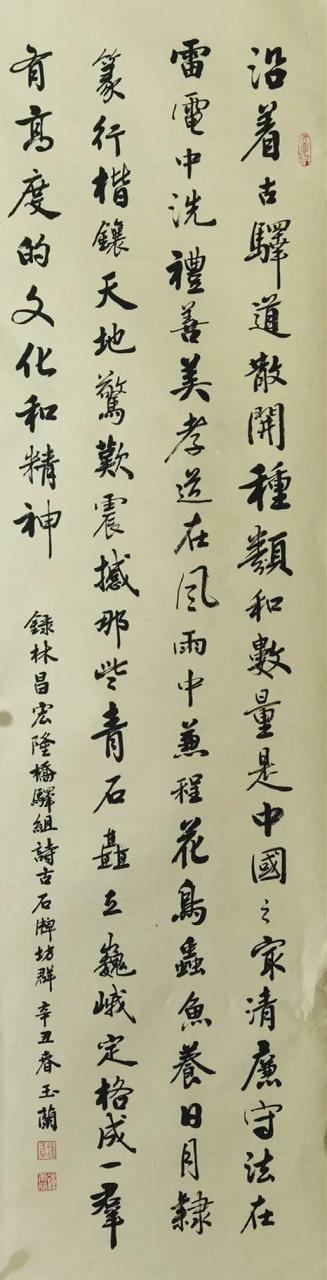 沿着古驛道散開種類和數量是中國之冣清廉守法在
雷電中洗禮善美孝道在風雨中兼程花鳥蟲魚養日月隸
篆行楷鑲天地驚歎震撼那些青石矗立巍峨定格成一羣
有高度的文化和精神
録林昌宏隆橋驛組詩古石牌坊群 辛丑春玉蘭